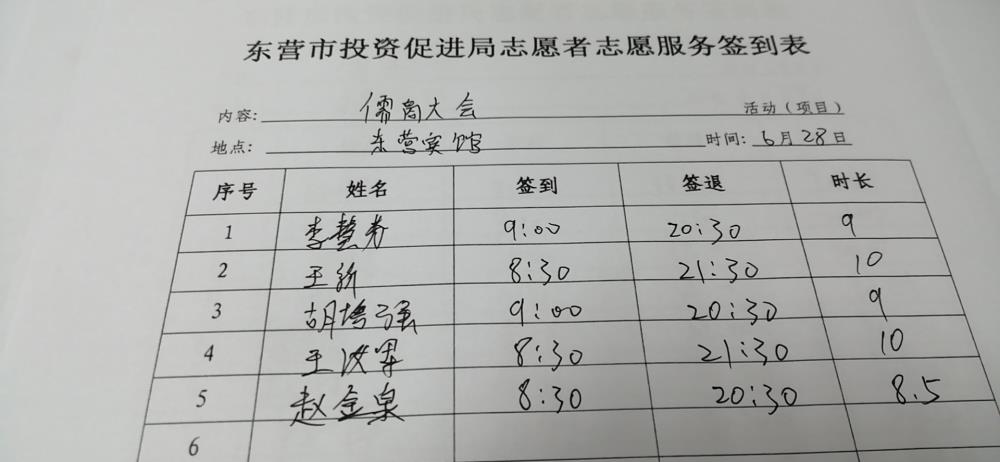 东营市投资促进局志愿者志愿服务签到表
内容: 儒商大会 活动(项目)
地点: 东营宾馆 时间: 6月28日
序号 姓名 签到 签退 时长
1 李慧芳 9:00 20:30 9
2 王新 8:30 21:30 10
3 胡增强 9:00 20:30 9
4 王汝军 8:30 21:30 10
5 赵金泉 8:30 20:30 8.5
6